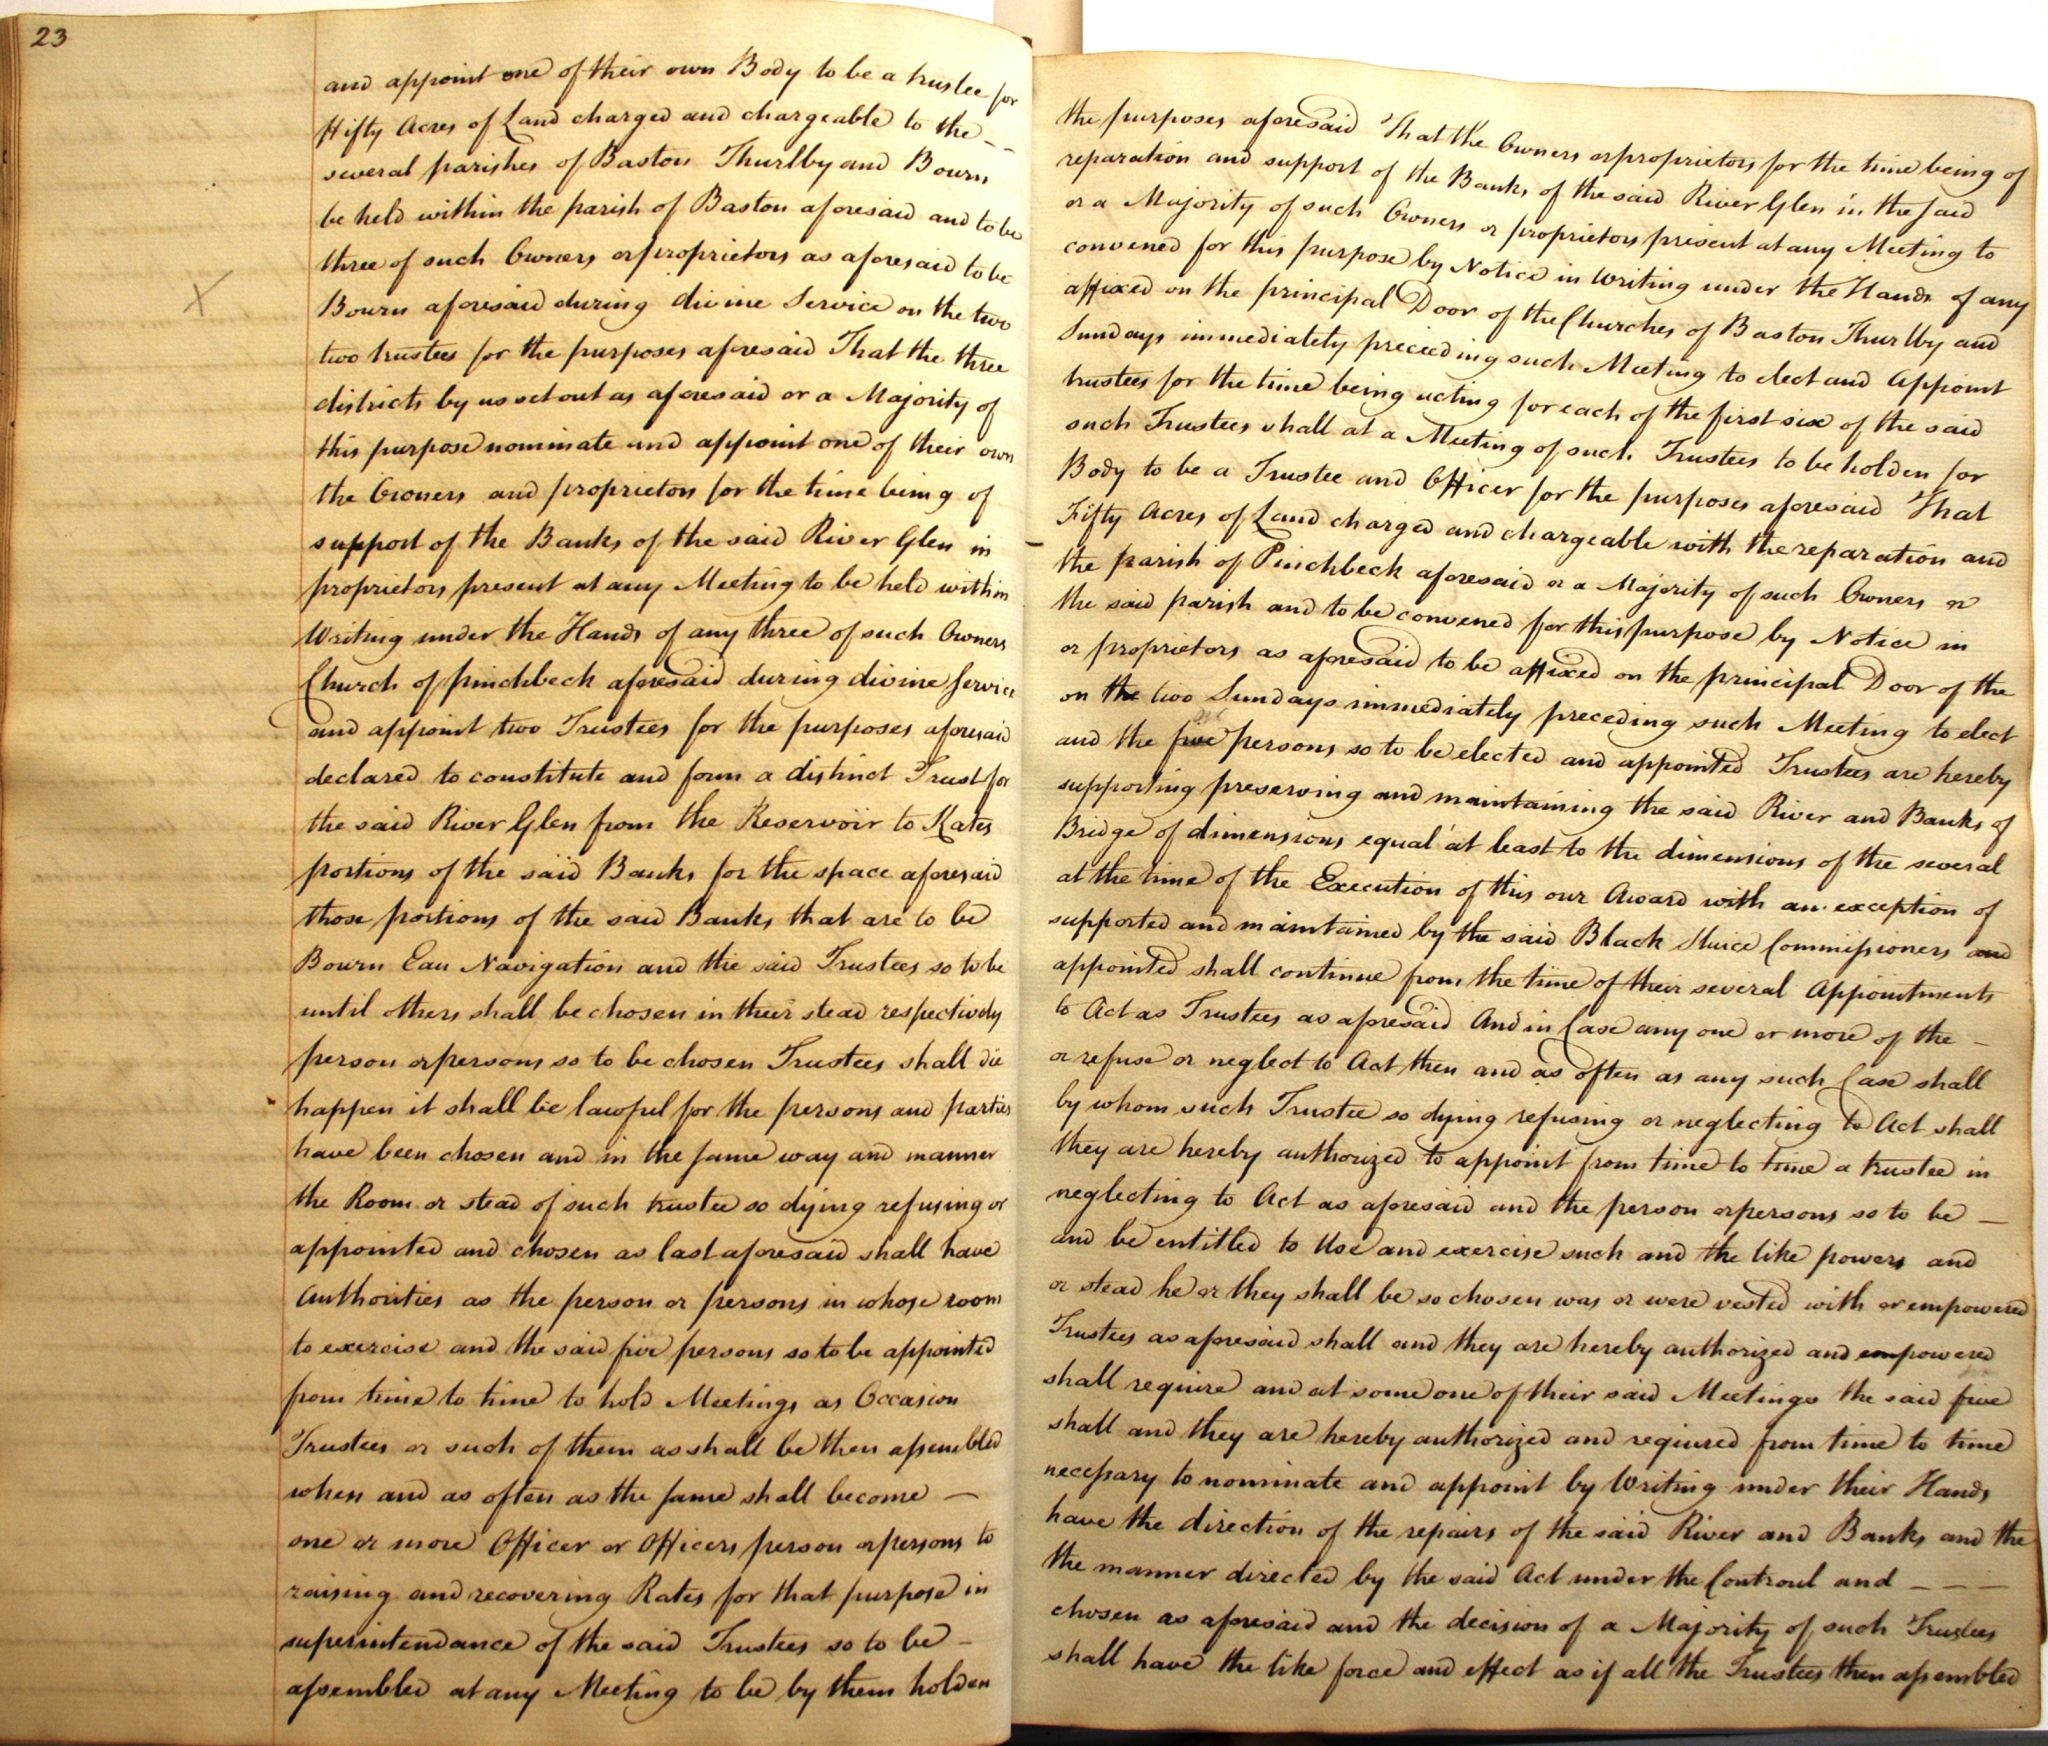 23
and appoint one of their own Body to be a trustee for the purposes aforesaid That the Owners or proprietors for the time being of
fifty Acres of Land charged and chargeable to the -- reparation and support of the Banks of the said River Glen in the said
several parishes of Baston Thurlby and Bourn or a Majority of such Owners or proprietors present at any Meeting to
be held within the parish of Baston aforesaid and to be convened for this purpose by Notice in Writing under the Hands of any
three of such Owners or proprietors as aforesaid to be affixed on the principal Door of the Churches of Baston Thurlby and
Bourn aforesaid during divine Service on the two Sundays immediately preceeding such Meeting to elect and Appoint
two trustees for the purposes aforesaid That the three trustees for the time being acting for each of the first six of the said
districts by us set out as aforesaid or a Majority of such Trustees shall at a Meeting of such Trustees to be holden for
this purpose nominate and appoint one of their own Body to be a Trustee and Officer for the purposes aforesaid That
the Owners and proprietors for the time being of Fifty Acres of Land charged and chargeable with the reparation and
support of the Banks of the said River Glen in the parish of Pinchbeck aforesaid or a Majority of such Owners or
proprietors present at any Meeting to be held within the said parish and to be convened for this purpose by Notice in
Writing under the Hands of any three of such Owners or proprietors as aforesaid to be affixed on the principal Door of the
Church of pinchbeck aforesaid during divine Service on the two Sundays immediately preceding such Meeting to elect
and appoint two Trustees for the purposes aforesaid and the five persons so to be elected and appointed Trustees are hereby
declared to constitute and form a distinct Trust for supporting preserving and maintaining the said River and Banks of
the said River Glen from the Reservoir to Kates Bridge of dimensions equal at least to the dimensions of the several
portions of the said Banks for the space aforesaid at the time of the Execution of this our Award with an exception of
those portions of the said Banks that are to be supported and maintained by the said Black Sluice Commissioners and
Bourn Eau Navigation and the said Trustees so to be appointed shall continue from the time of their several Appointments
until others shall be chosen in their stead respectively to Act as Trustees as aforesaid And in Case any one or more of the -
person or persons so to be chosen Trustees shall die or refuse or neglect to Act then and as often as any such Case shall
happen it shall be lawful for the persons and parties by whom such Trustee so dying refusing or neglecting to Act shall
have been chosen and in the same way and manner they are hereby authorized to appoint from time to time a trustee in
the Room or stead of such trustee so dying refusing or neglecting to Act as aforesaid and the person or persons so to be -
appointed and chosen as last aforesaid shall have and be entitled to Use and exercise such and the like powers and
Authorities as the person or persons in whose room or stead he or they shall be so chosen was or were vested with or empowered
to exercise and the said five persons so to be appointed Trustees as aforesaid shall and they are hereby authorized and empowered
from time to time to hold Meetings as Occasion shall require and at some one of their said Meetings the said five
Trustees or such of them as shall be then assembled shall and they are hereby authorized and required from time to time
when and as often as the same shall become - necessary to nominate and appoint by Writing under their Hands
one or more Officer or Officers person or persons to have the direction of the repairs of the said River and Banks and the
raising and recovering Rates for that purpose in the manner directed by the said Act under the Controul and ---
superintendance of the said Trustees so to be - chosen as aforesaid and the decision of a Majority of such Trustees
assembled at any Meeting to be by them holden shall have the like force and effect as if all the Trustees then assembled